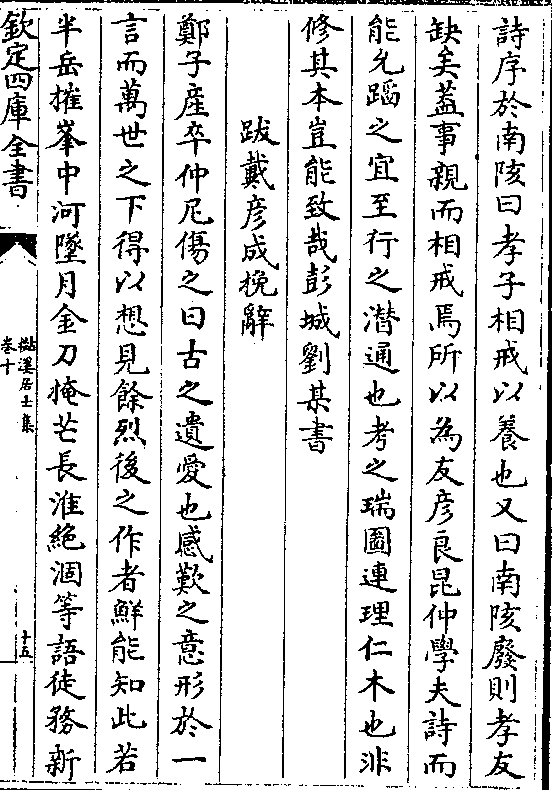 詩序於南陔曰孝子相戒以養也又曰南陔廢則孝友
缺矣葢事親而相戒焉所以為友彦良昆仲學夫詩而
能允蹈之宜至行之潛通也考之瑞圖連理仁木也非
修其本豈能致哉彭城劉某書
跋戴彦成挽辭
鄭子產卒仲尼傷之曰古之遺愛也感歎之意形於一
言而萬世之下得以想見餘烈後之作者鮮能知此若
半岳摧峯中河墜月金刀掩芒長淮絶涸等語徒務新
欽定四庫全書
㵎溪居士集
卷十
十五